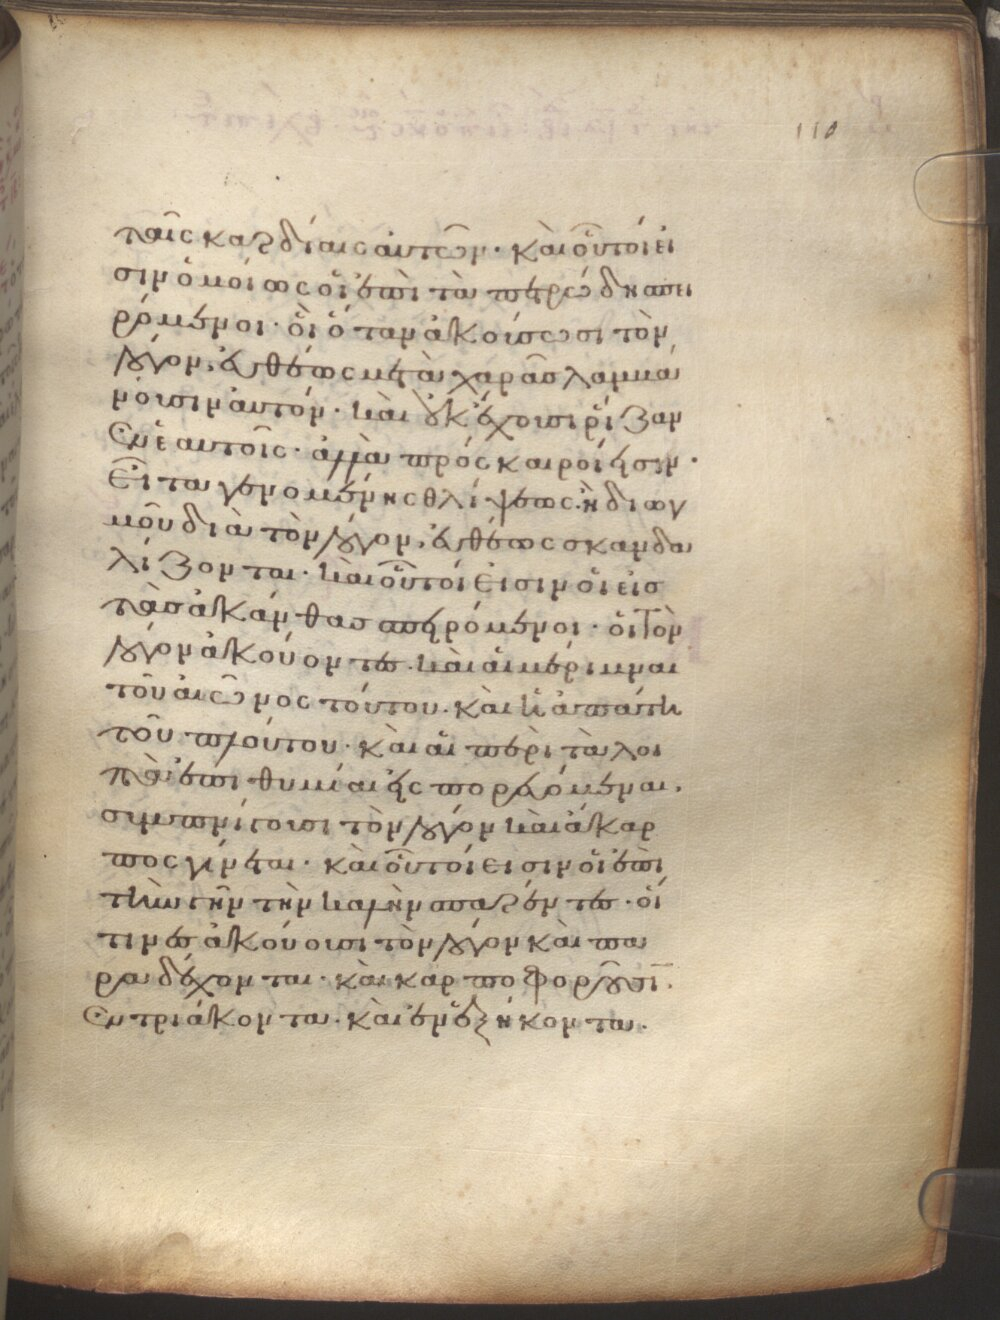 110
ταῖς καρδίαις αὐτῶν· καὶ οὗτοί εἰ
σιν ὁμοίως οἱ ἐπὶ τὰ πετρώδη σπει
ρόμενοι· οἳ ὅταν ἀκούσωσι τὸν
λόγον, εὐθέως μετὰ χαρᾶς λαμμά
νουσιν αὐτόν· καὶ οὐκ ἔχουσι ρίζαν
ἐν ἑαυτοῖς· ἀλλὰ πρόσκαιροί εἰσιν·
Εἶτα γενομένης θλίψεως ἢ διωγ
μοῦ διὰ τὸν λόγον, εὐθέως σκανδα
λίζονται· καὶ οὗτοί εἰσιν οἱ εἰς
τὰς ἀκάνθας σπειρόμενοι· οἱ τὸν
λόγον ἀκούοντες· καὶ αἱ μέριμναι
τοῦ αἰῶνος τούτου· καὶ ἡ ἀπάτη
τοῦ πλούτου· καὶ αἱ περὶ τὰ λοι
πὰ ἐπιθυμίαι εἰσπορευόμεναι,
συμπνίγουσι τὸν λόγον καὶ ἄκαρ
πος γίνεται· καὶ οὗτοί εἰσιν οἱ ἐπὶ
τὴν γῆν τὴν καλὴν σπαρέντες· οἵ
τινες ἀκούουσι τὸν λόγον καὶ πα
ραδέχονται· καὶ καρποφοροῦσι·
Ἐν τριάκοντα· καὶ ἐν ἑξήκοντα·